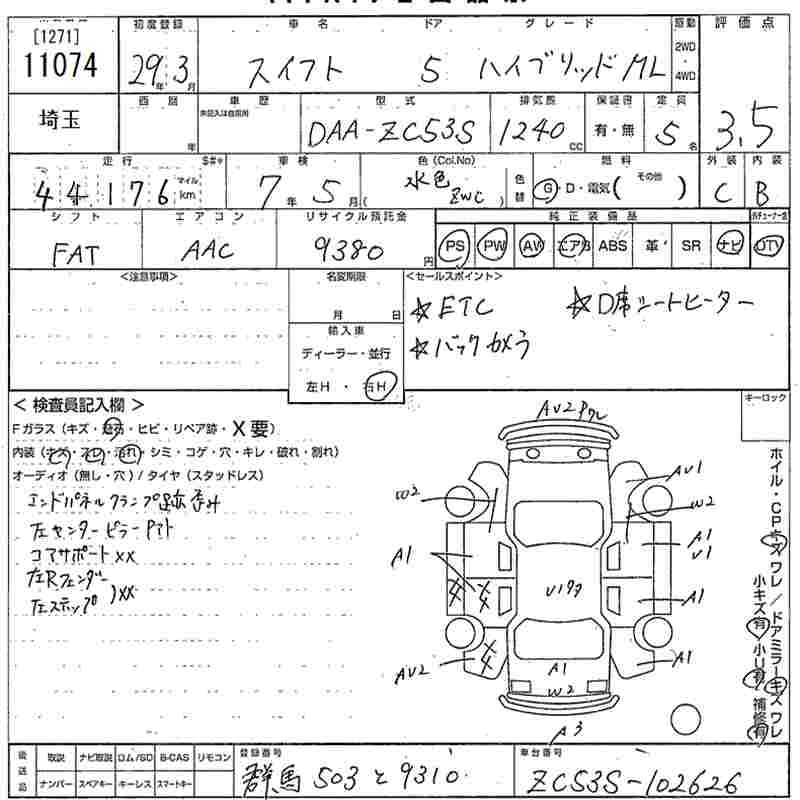 [1271]
11074
初度登録 車名 ドア グレード 駆動 評価点
29年3月 スイフト 5 ハイブリッドML 2WD・4WD 3.5
埼玉 車歴 型式 排気量 保証書 定員
未記入は自家用
年 DAA-ZC53S 1240cc 有・無 5名
走行 車検 色(Col.No) 燃料 外装 内装
44,176 マイル km 7年5月 水色 ZWC 色替 G・D・電気( その他 ) C B
シフト エアコン リサイクル預託金 純正装備品
FAT AAC 9380円 PS PW AW エアB ABS 革 SR ナビ TV
<注意事項> 名変期限 <セールスポイント>
月 日 ☆ETC ☆D席シートヒーター
輸入車 ☆バックカメラ
ディーラー・並行
左H・右H
<検査員記入欄> キーロック
Fガラス(キズ・飛石・ヒビ・リペア跡・X要)
内装(キズ・スレ・汚れ・シミ・コゲ・穴・キレ・破れ・割れ)
オーディオ(無し・穴)/タイヤ(スタッドレス)
エンドパネルクランプ跡歪み
左センターピラーPアト
コアサポートXX
左Rフェンダー
左ステップ )XX
AV2
AV1
W2 W2
A1 A1 V1
A1
AV2 A1 A1
W2
A3
ホイル・CPキズワレ/ドアミラーキズワレ
小キズ有・小U有・補修有
後送品 取説 ナビ取説 ロム/SD B-CAS リモコン 登録番号 車台番号
ナンバー スペアキー キーレス スマートキー 群馬 503 と 9310 ZC53S-102626